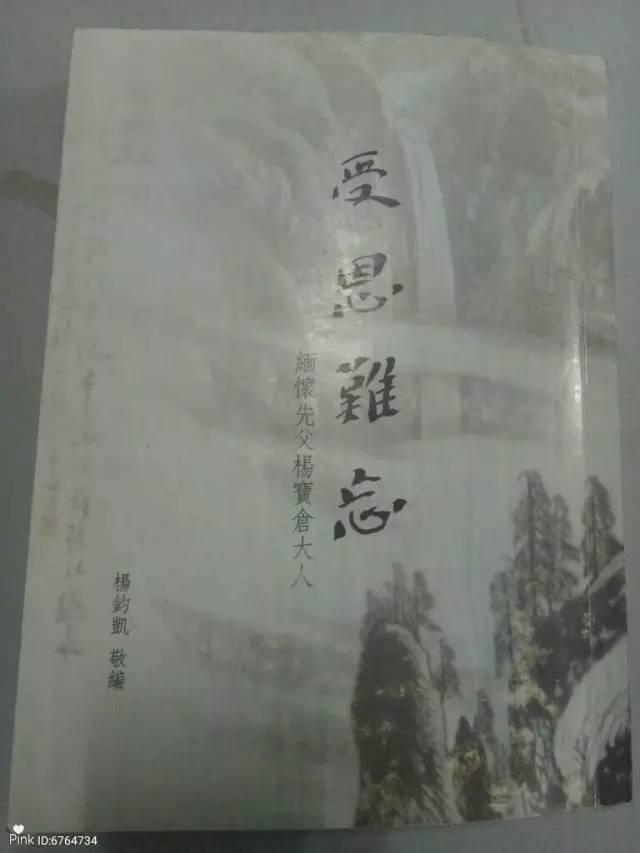 受恩難忘
緬懷先父楊寶倉大人
楊鈞凱 敬編
Pink ID:6764734